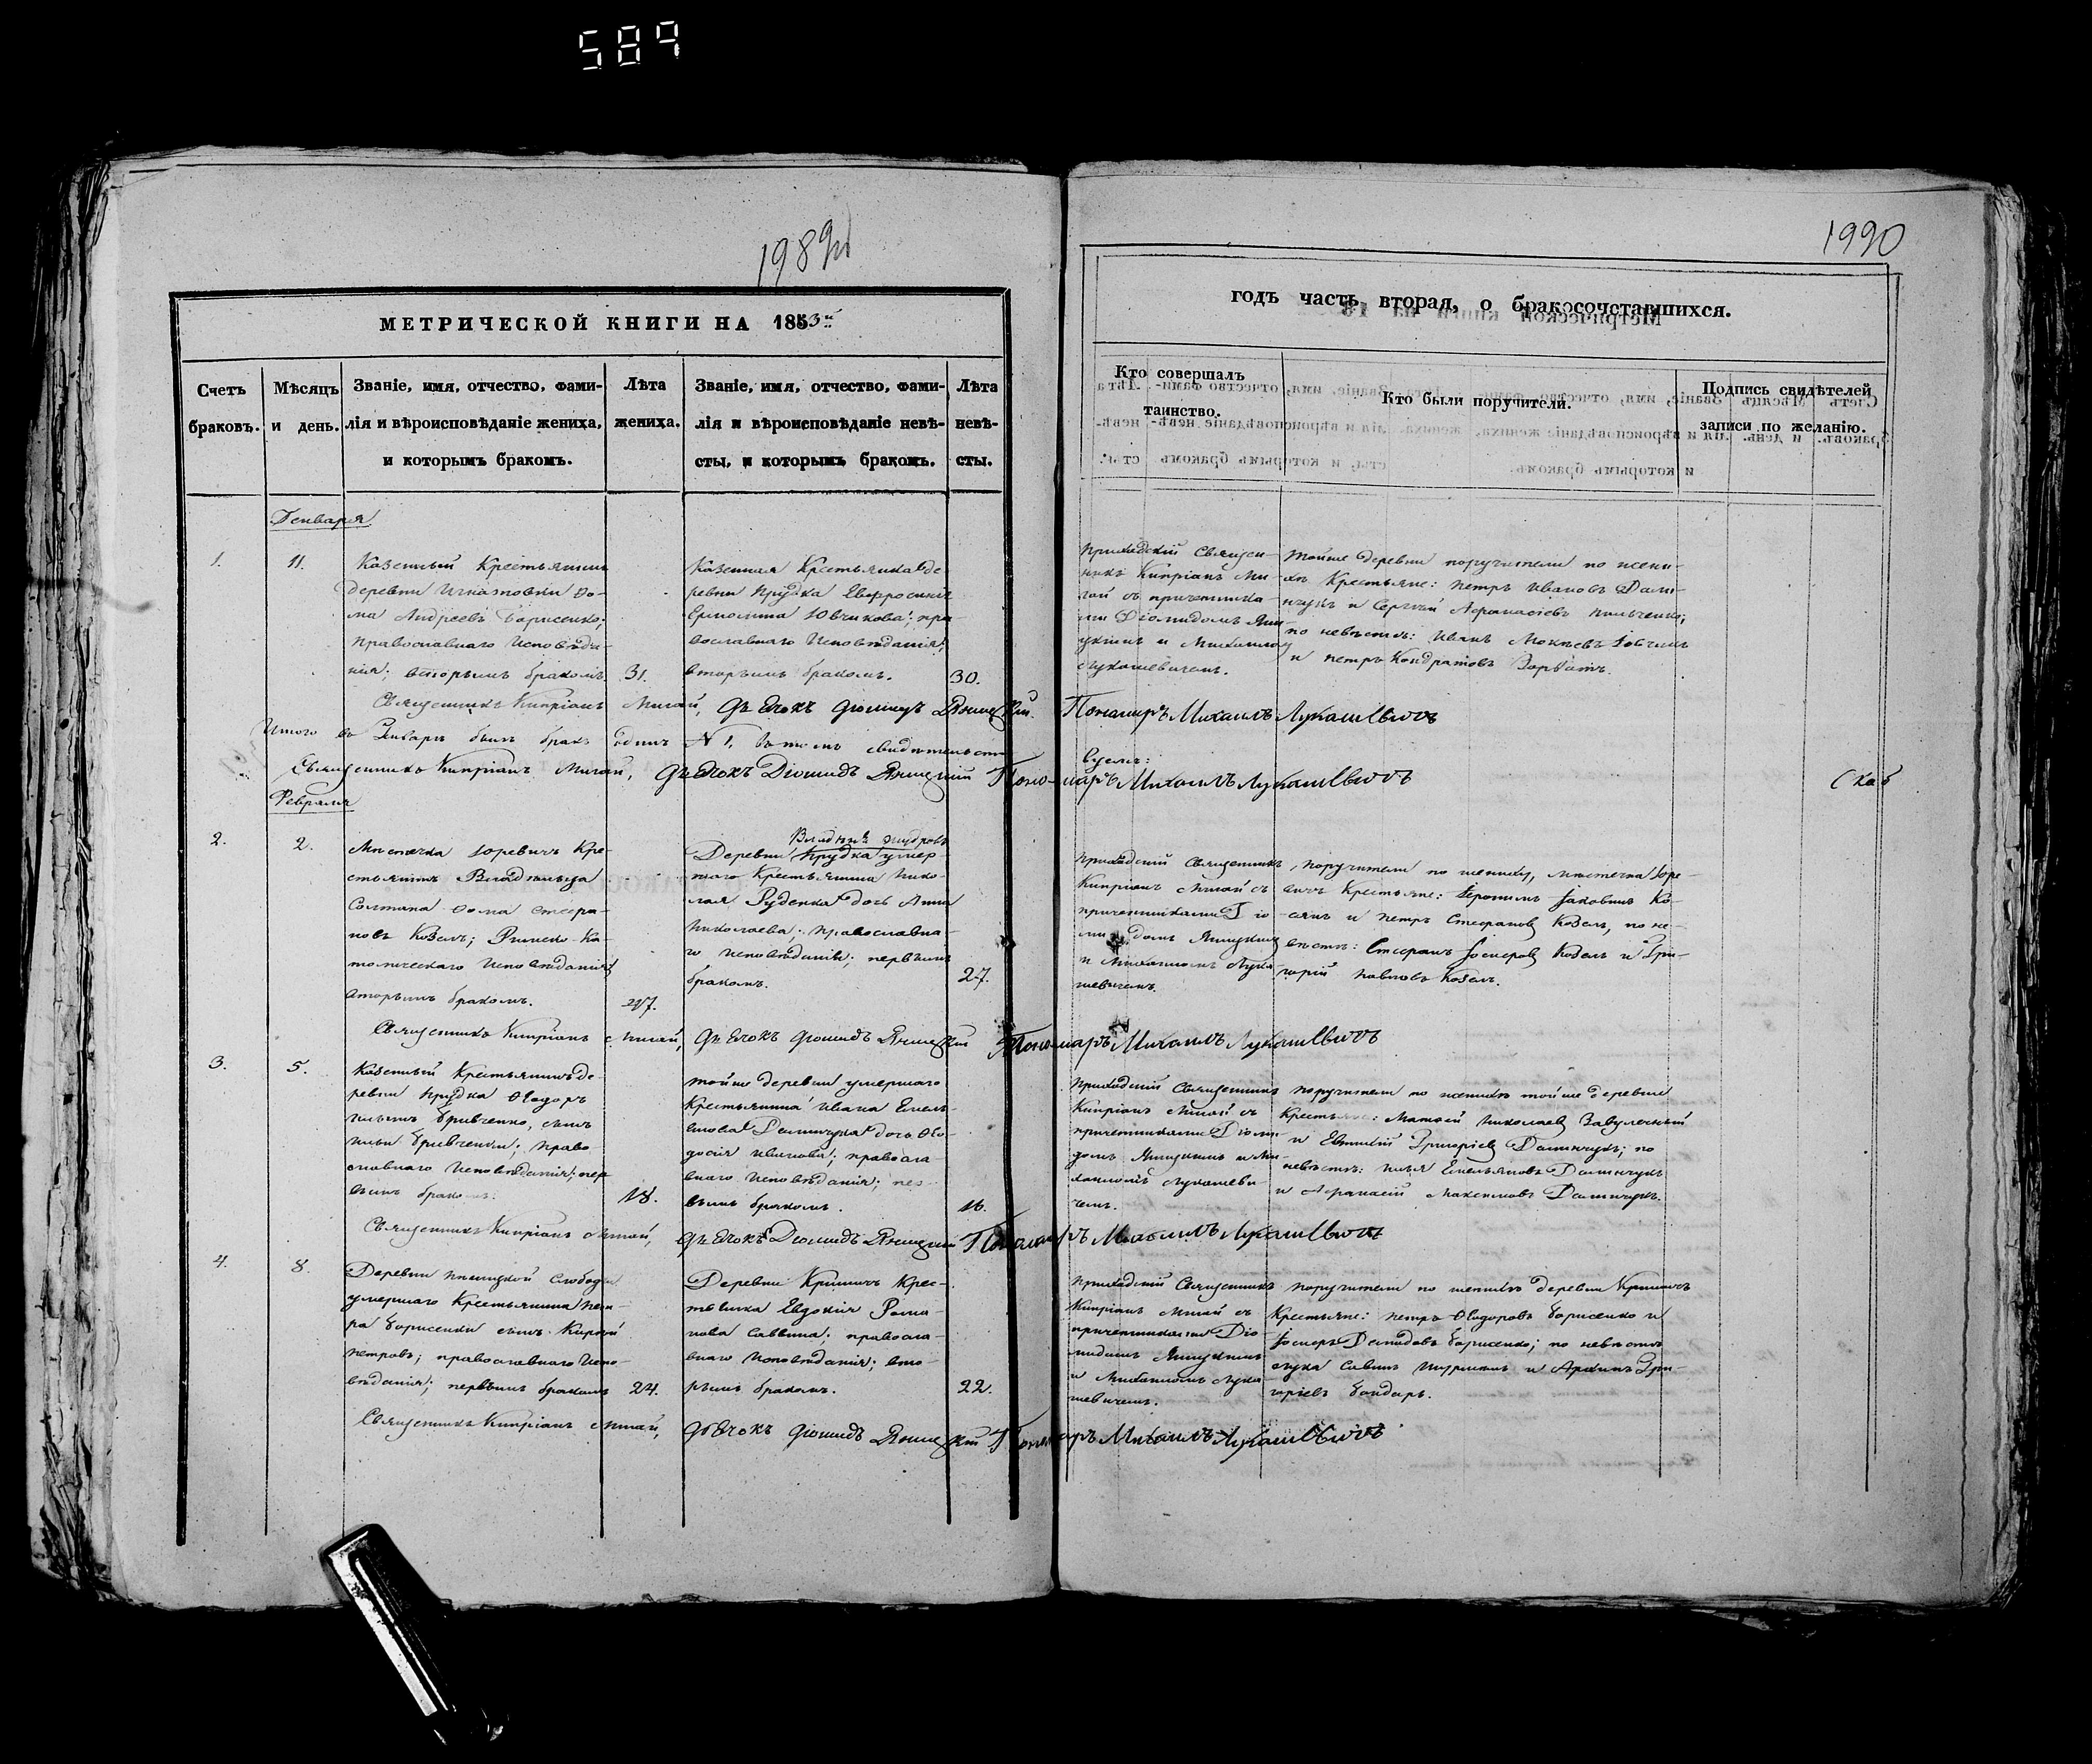 589
1989
1990
МЕТРИЧЕСКОЙ КНИГИ НА 1853й
годъ часть вторая, о бракосочетавшихся.
Счетъ браковъ.
Мѣсяцъ и день.
Званіе, имя, отчество, фами-
лія и вѣроисповѣданіе жениха,
и которымъ бракомъ.
Лѣта жениха.
Званіе, имя, отчество, фами-
лія и вѣроисповѣданіе невѣ-
сты, и которымъ бракомъ.
Лѣта невѣ-
сты.
Кто совершалъ
таинство.
Кто были поручители.
Подпись свидѣтелей
записи по желанію.
Генваря
1.
11.
Казенный Крестьянинъ
деревни Игнатовки Фо-
ма Андреевъ Борисенко;
православнаго исповѣда-
нія; вторымъ бракомъ
31.
Казенная Крестьянка де-
ревни Прудка Евфросинія
православнаго исповѣданія;
вторымъ бракомъ.
30.
Приходскій Священ-
никъ Кипріанъ Ми-
гай съ причетника-
ми Діомидомъ Яни-
цкимъ и Михаиломъ
Лукашевичемъ.
Тойже деревни поручители по жени-
хѣ Крестьяне: Петръ Ивановъ Дани-
чукъ и Сергѣй Афанасіевъ
по невѣстѣ: Иванъ
и Петръ Кондратовъ
Священникъ Кипріанъ Мигай, Дьячокъ Діомидъ Яницкій Пономаръ Михаилъ Лукашевичъ
Итого въ Январѣ былъ бракъ одинъ № 1. въ томъ свидѣтельст
вуемъ:
Священникъ Кипріанъ Мигай, Дьячокъ Діомидъ Яницкій Пономаръ Михаилъ Лукашевичъ
Февраля
2.
2.
Мѣстечка Юревичъ Кре-
стьянинъ Владѣльца
Солтана Фома Стефа-
новъ Козелъ; Римско-Ка-
толическаго исповѣданія;
вторымъ бракомъ.
Деревни Прудка умер-
шаго Крестьянина Нико-
лая Руденка дочь Анна
Николаева; православна-
го исповѣданія; первымъ
бракомъ.
27.
Приходскій Священникъ
Кипріанъ Мигай съ
причетниками Діо-
мидомъ Яницкимъ
и Михаиломъ Лука-
шевичемъ.
поручители по женихѣ, мѣстечка Юре-
вичъ Крестьяне: Іеронимъ Іаковлевъ Ко-
и Петръ Стефановъ Козелъ, по не-
вѣстѣ: Стефанъ Іосифовъ Козелъ и Гри-
горій Павловъ Козелъ.
Священникъ Кипріанъ Мигай, Дьячокъ Діомидъ Яницкій Пономаръ Михаилъ Лукашевичъ
3.
5.
Казенный Крестьянинъ де-
ревни Прудка Ѳеодоръ
Ильинъ Гривченко, сынъ
Ильи Гривченки; право
славнаго исповѣданія; пер
вымъ бракомъ.
18.
тойже деревни умершаго
Крестьянина Ивана Емель-
янова Даничука дочь Ѳео-
досія Иванова; правосла-
внаго исповѣданія; пер-
вымъ бракомъ.
16.
Приходскій Священникъ
Кипріанъ Мигай съ
причетниками Діоми-
домъ Яницкимъ и Ми-
хаиломъ Лукашеви-
чемъ.
поручители по женихѣ тойже деревни
Крестьяне: Матѳей Николаевъ
и Евтихій Григоріевъ Данинчукъ; по
невѣстѣ: Илья Емельяновъ Данинчукъ
и Афанасій Максимовъ Данинчукъ.
Священникъ Кипріанъ Мигай, Дьячокъ Діомидъ Яницкій Пономаръ Михаилъ Лукашевичъ
4.
8.
Деревни Слободы
умершаго Крестьянина Пет-
ра Борисенки сынъ
Петровъ; православнаго испо-
вѣданія; первымъ бракомъ
24.
Деревни Кримичъ Крес-
тьянка Евдокія Рома-
нова Саввина; правосла-
внаго исповѣданія; вто-
рымъ бракомъ.
22.
Приходскій Священникъ
Кипріанъ Мигай съ
причетниками Діо-
мидомъ Яницкимъ
и Михаиломъ Лука
шевичемъ.
поручители по женихѣ деревни Кримичъ
Крестьяне: Петръ Ѳеодоровъ Борисенко и
Іосифъ Демидовъ Борисенко; по невѣстѣ
Лука Савинъ и Архипъ Гри-
горіевъ Бондарь.
Священникъ Кипріанъ Мигай, Дьячокъ Діомидъ Яницкій Пономаръ Михаилъ Лукашевичъ